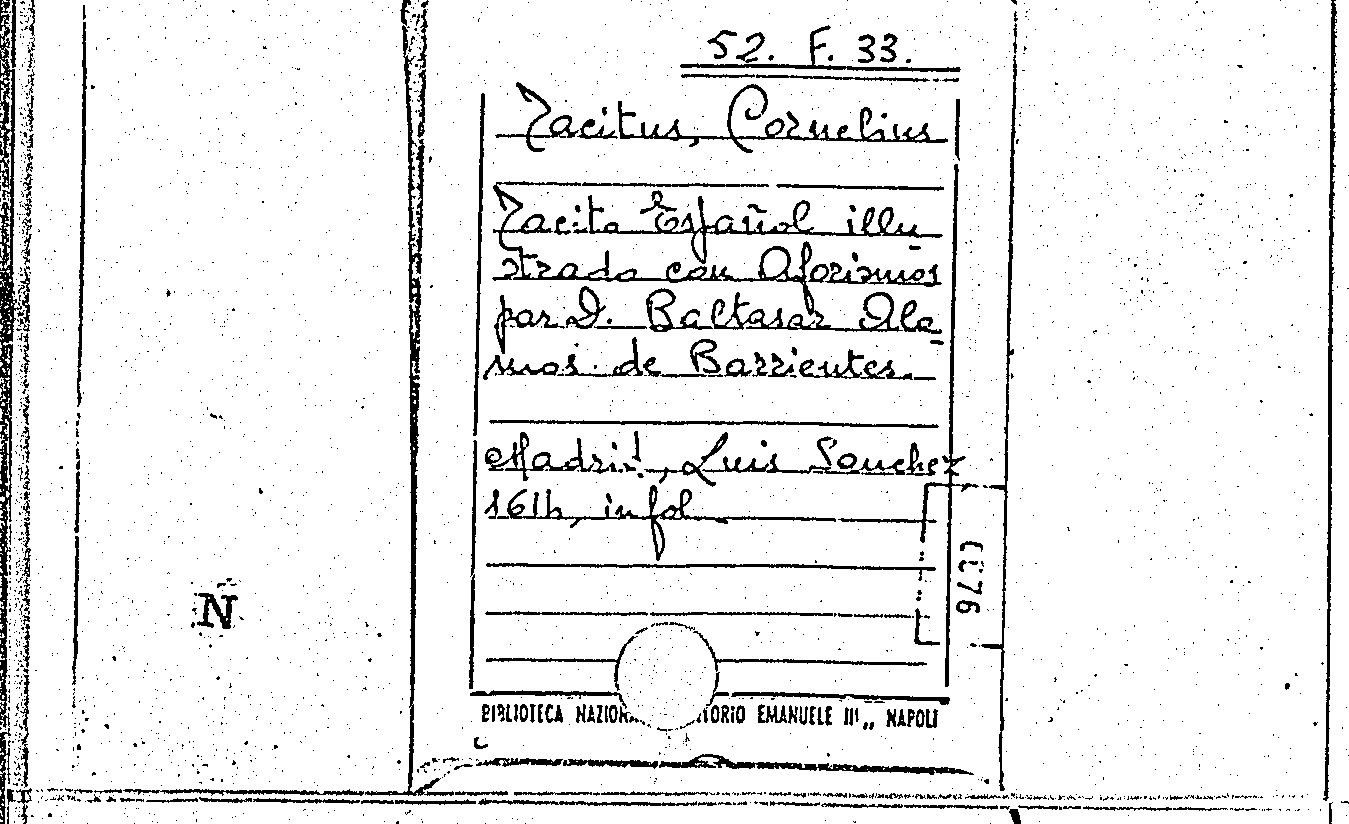 52. F. 33.
Tacitus, Cornelius
Tacito Español illu_
strado con Aforismos
par D. Baltasar Ala_
mos de Barrientes.
Madrid, Luis Sanchez
1614, in fol
N
BIBLIOTECA NAZION TORIO EMANUELE III „ NAPOLI